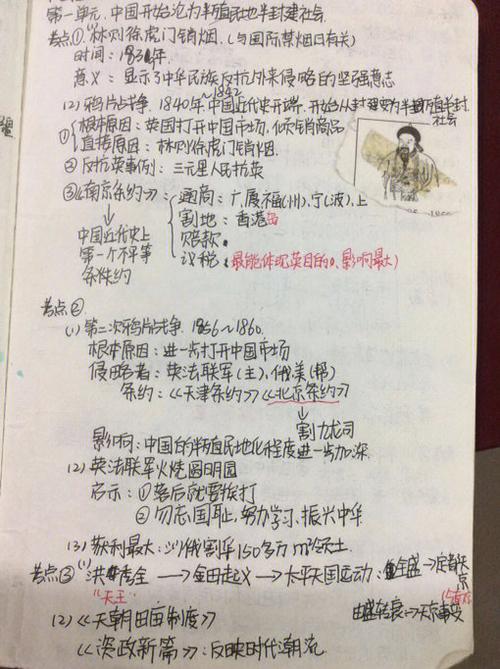 第一单元.中国开始沦为半殖民地半封建社会
考点① (1)林则徐虎门销烟.(与国际禁烟日有关)
时间:1839年
意义:显示了中华民族反抗外来侵略的坚强意志
(2)鸦片战争.1840年~1842 中国近代史开端.开始从封建变为半殖民地半封建社会
① 根本原因:英国打开中国市场,倾销商品
直接原因:林则徐虎门销烟.
② 反抗英事例:三元里人民抗英
③《南京条约》:通商:广、厦、福(州)、宁(波)、上
割地:香港岛
赔款:
议税:最能体现英目的、影响最大)
中国近代史上
第一个不平等
条约
考点②
(1)第二次鸦片战争.1856~1860.
根本原因:进一步打开中国市场
侵略者:英法联军(主)、俄、美(帮)
条约:《天津条约》《北京条约》
割九龙司
影响:中国的半殖民地化程度进一步加深
(2)英法联军火烧圆明园
启示:①落后就要挨打
②勿忘国耻,努力学习、振兴中华
(3)获利最大:沙俄割华150多万m²领土.
考点③ (1)洪秀全→金田起义→太平天国运动:全盛→定都天京
"天王"
由盛转衰→天京事变
(2)《天朝田亩制度》
《资政新篇》:反映时代潮流